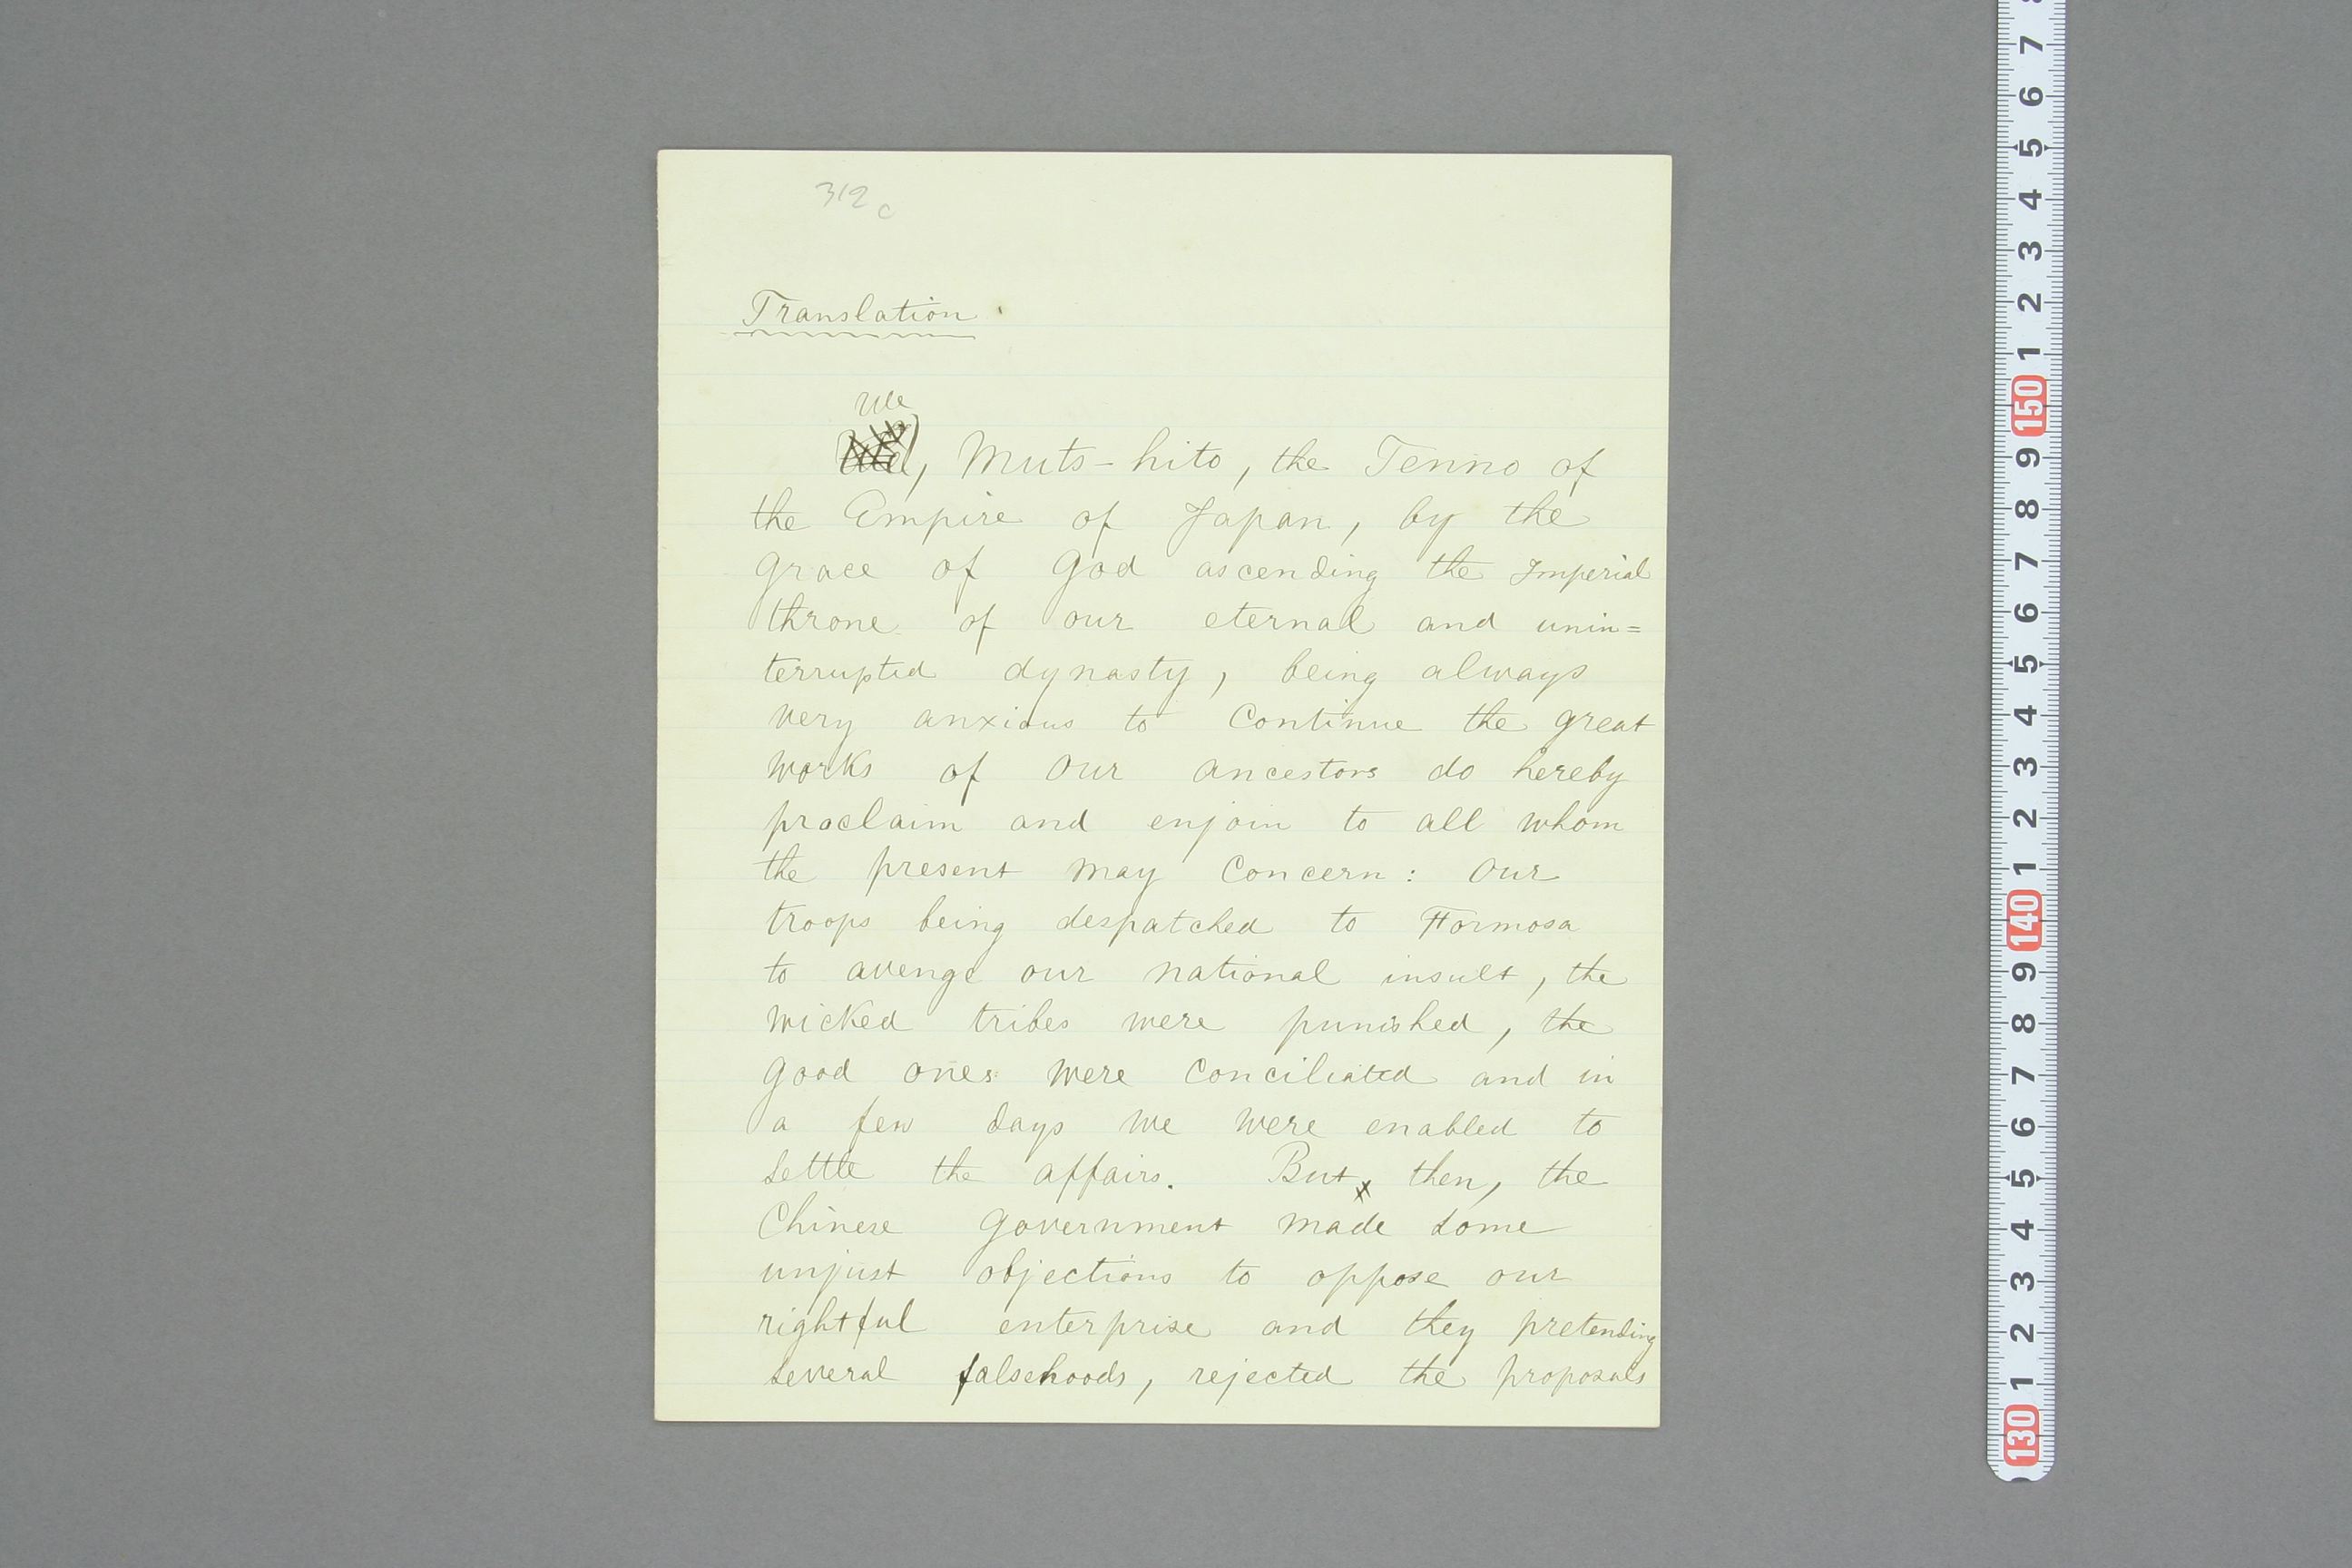 312 c
Translation.
We
, Muts-hito, the Tenno of
the Empire of Japan, by the
grace of God ascending the Imperial
throne of our eternal and unin=
terrupted dynasty, being always
very anxious to continue the great
works of our ancestors do hereby
proclaim and enjoin to all whom
the present may concern: Our
troops being despatched to Formosa
to avenge our national insult, the
wicked tribes were punished, the
good ones were conciliated and in
a few days we were enabled to
settle the affairs. But x then, the
Chinese Government made some
unjust objections to oppose our
rightful enterprise and they pretending
several falsehoods, rejected the proposals
7
6
5
4
3
2
1
150
9
8
7
6
5
4
3
2
1
140
9
8
7
6
5
4
3
2
1
130